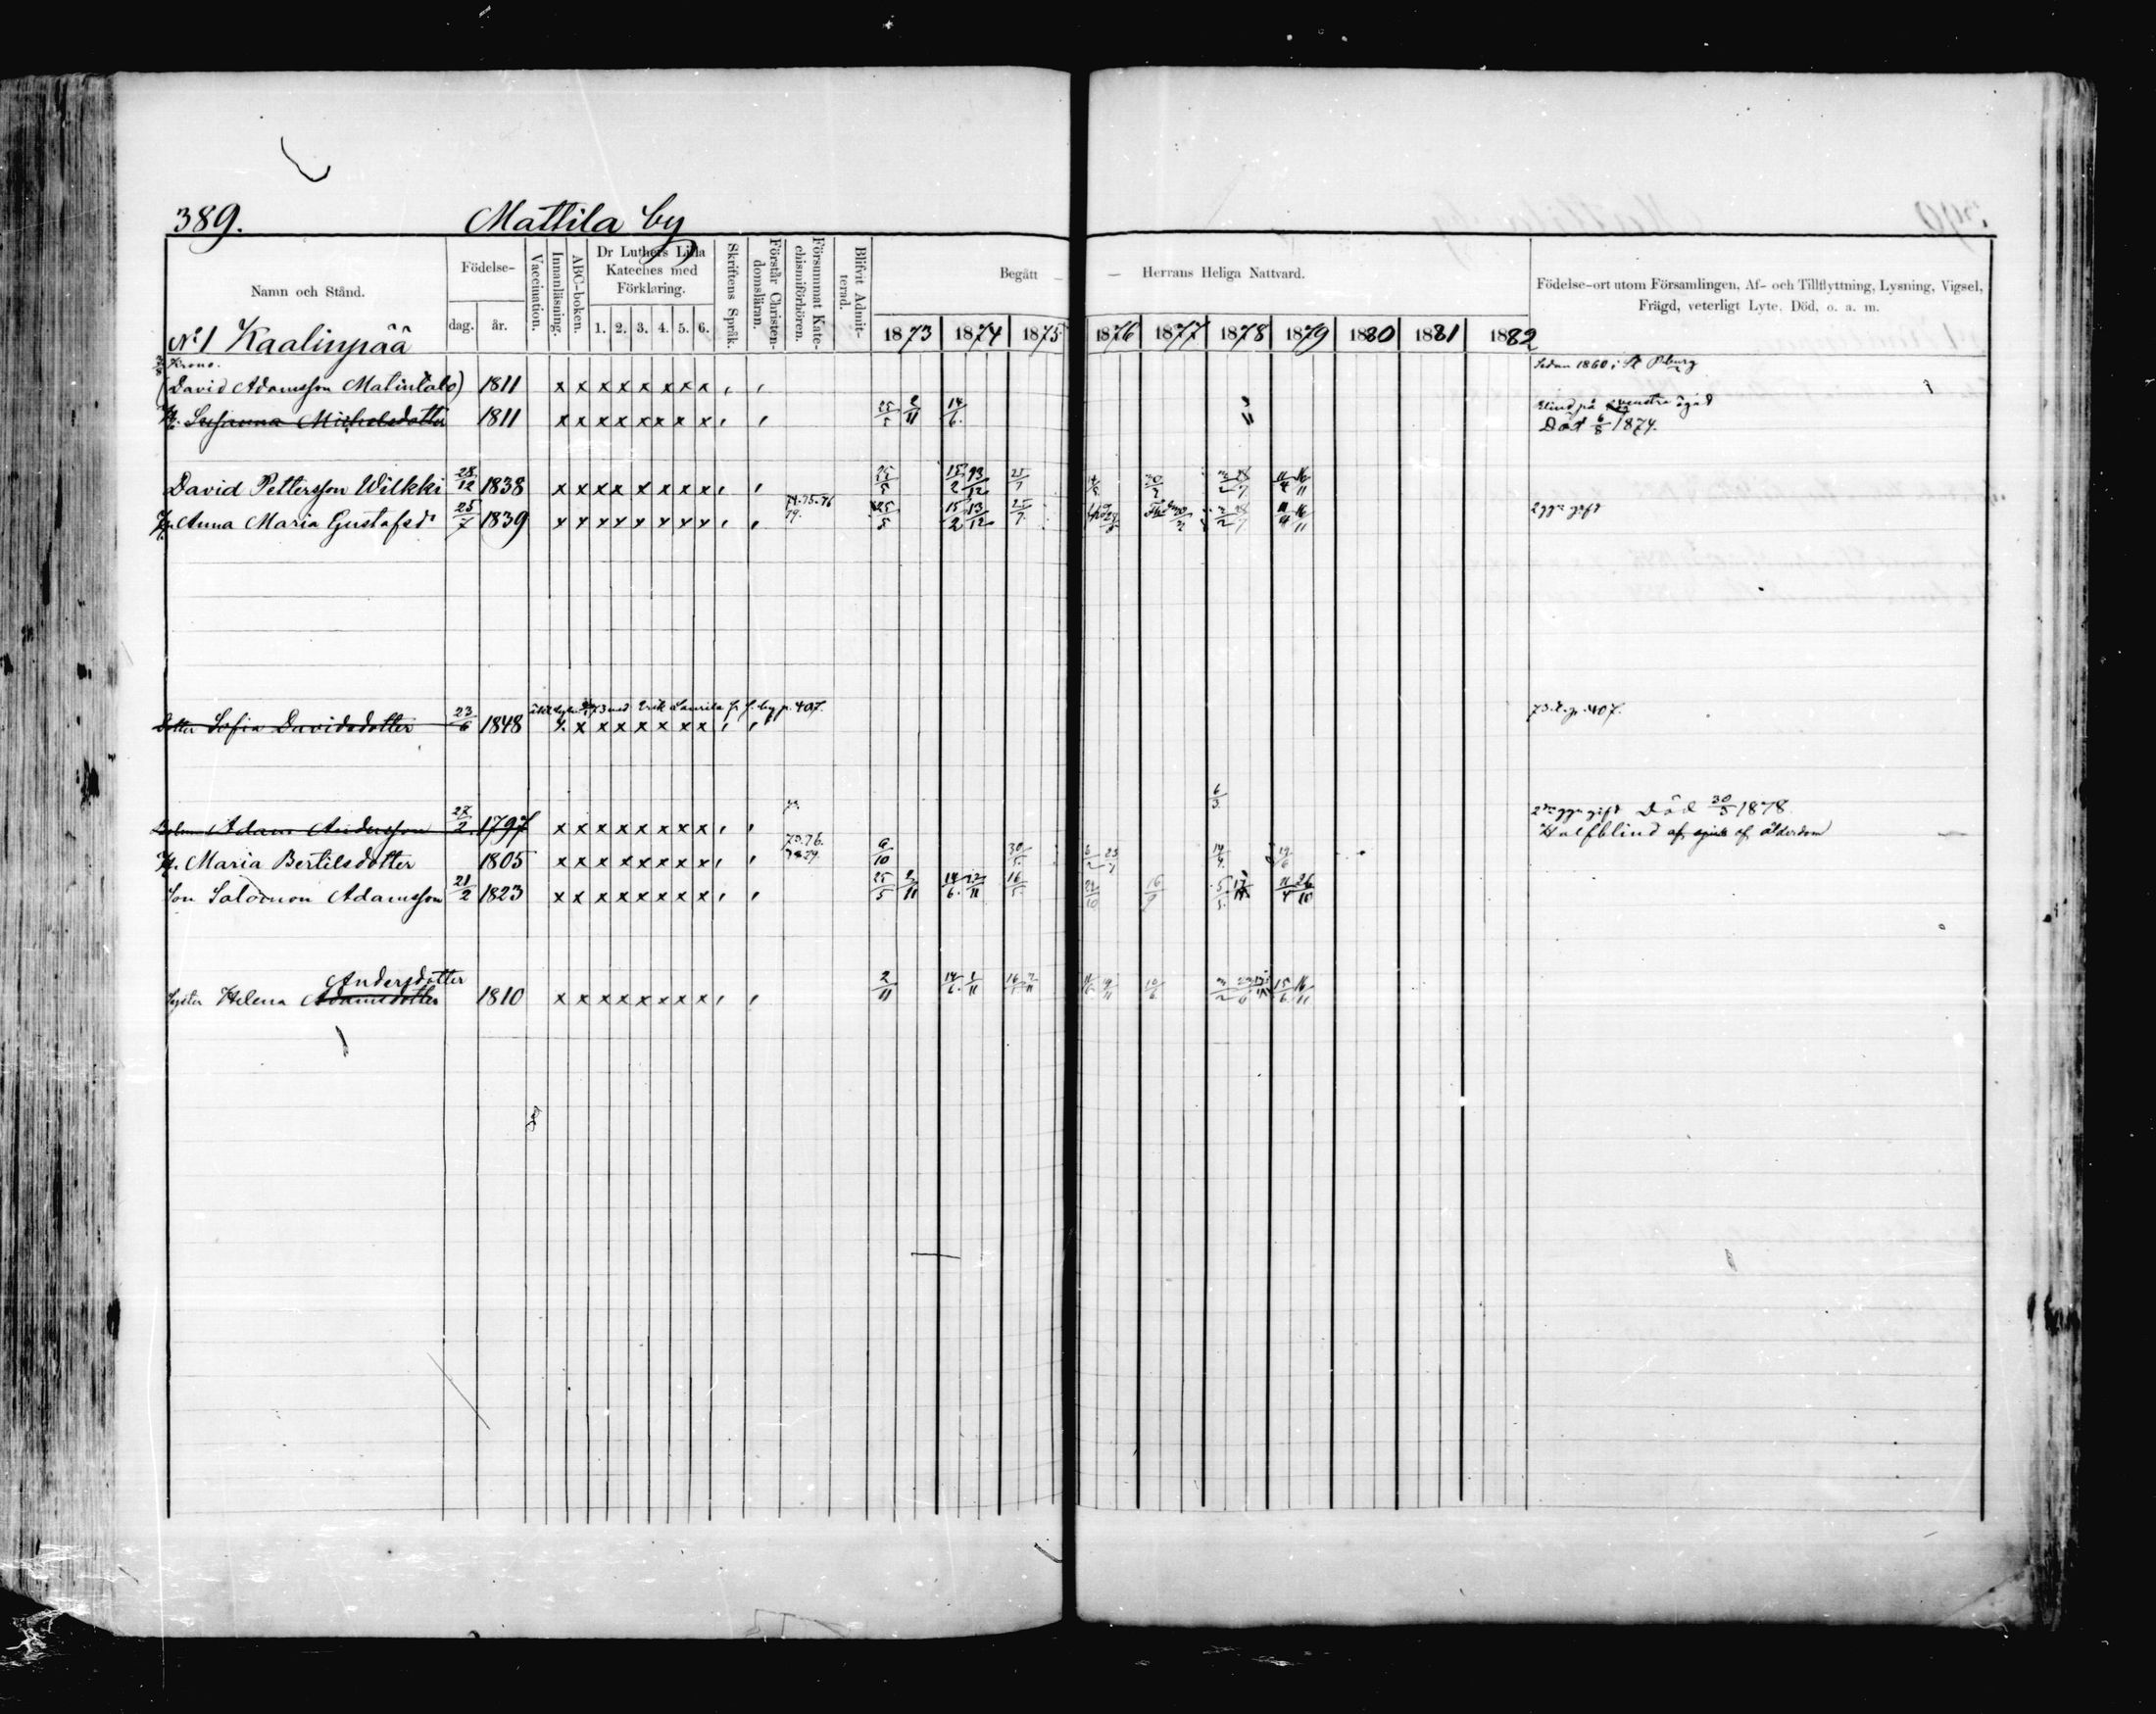 389. Mattila by
Namn och Stånd.
Födelse-
dag. år.
Vaccination.
Innanläsning.
ABC-boken.
Dr Luthers Lilla
Kateches med
Förklaring.
1. 2. 3. 4. 5. 6.
Skriftens Språk.
Förstår Christen-
domsläran.
Försummat Kate-
chismiförhören.
Blifvit Admit-
terad.
Begått — — Herrans Heliga Nattvard.
1873 1874 1875 1876 1877 1878 1879 1880 1881 1882
Födelse-ort utom Församlingen, Af- och Tillflyttning, Lysning, Vigsel,
Frägd, veterligt Lyte, Död, o. a. m.
No 1 Kaalinpää
Krono.
(David Adamsson Matintalo) 1811 x x x x x x x x , , Sedan 1860 i St Pburg
H. Susanna Michelsdotter 1811 x x x x x x x x , , 25/5 2/11 14/6. Blind på venstra ögat
Död 6/8 1874.
David Pettersson Wilkki 28/12 1838 x x x x x x x x , , 25/5 15/2 13/12 25/7
74.75.76
79.
H. Anna Maria Gustafsdr 25/7 1839 x x x x x x x x , , 25/5 15/2 13/12 25/7 11/4 16/11 2 ggr gift
73 med Erik Laurila f. f. by p. 407.
Dotter Sofia Davidsdotter 23/6 1848 x x x x x x x x , , 73. t. p. 407.
Adam Andersson 27/2 1797 x x x x x x x x , , 6/3 2 ggr gift Död 30/3 1878.
Halfblind af ålderdom
H. Maria Bertilsdotter 1805 x x x x x x x x , , 75.76. 9/10 30/5
Son Salomon Adamsson 21/2 1823 x x x x x x x x , , 25/5 2/11 14/6. 22/11 16/5 11/4 26/10
Andersdotter
Syster Helena Adamsdotter 1810 x x x x x x x x , , 2/11 14/6. 1/11 10/6 15/6 16/11